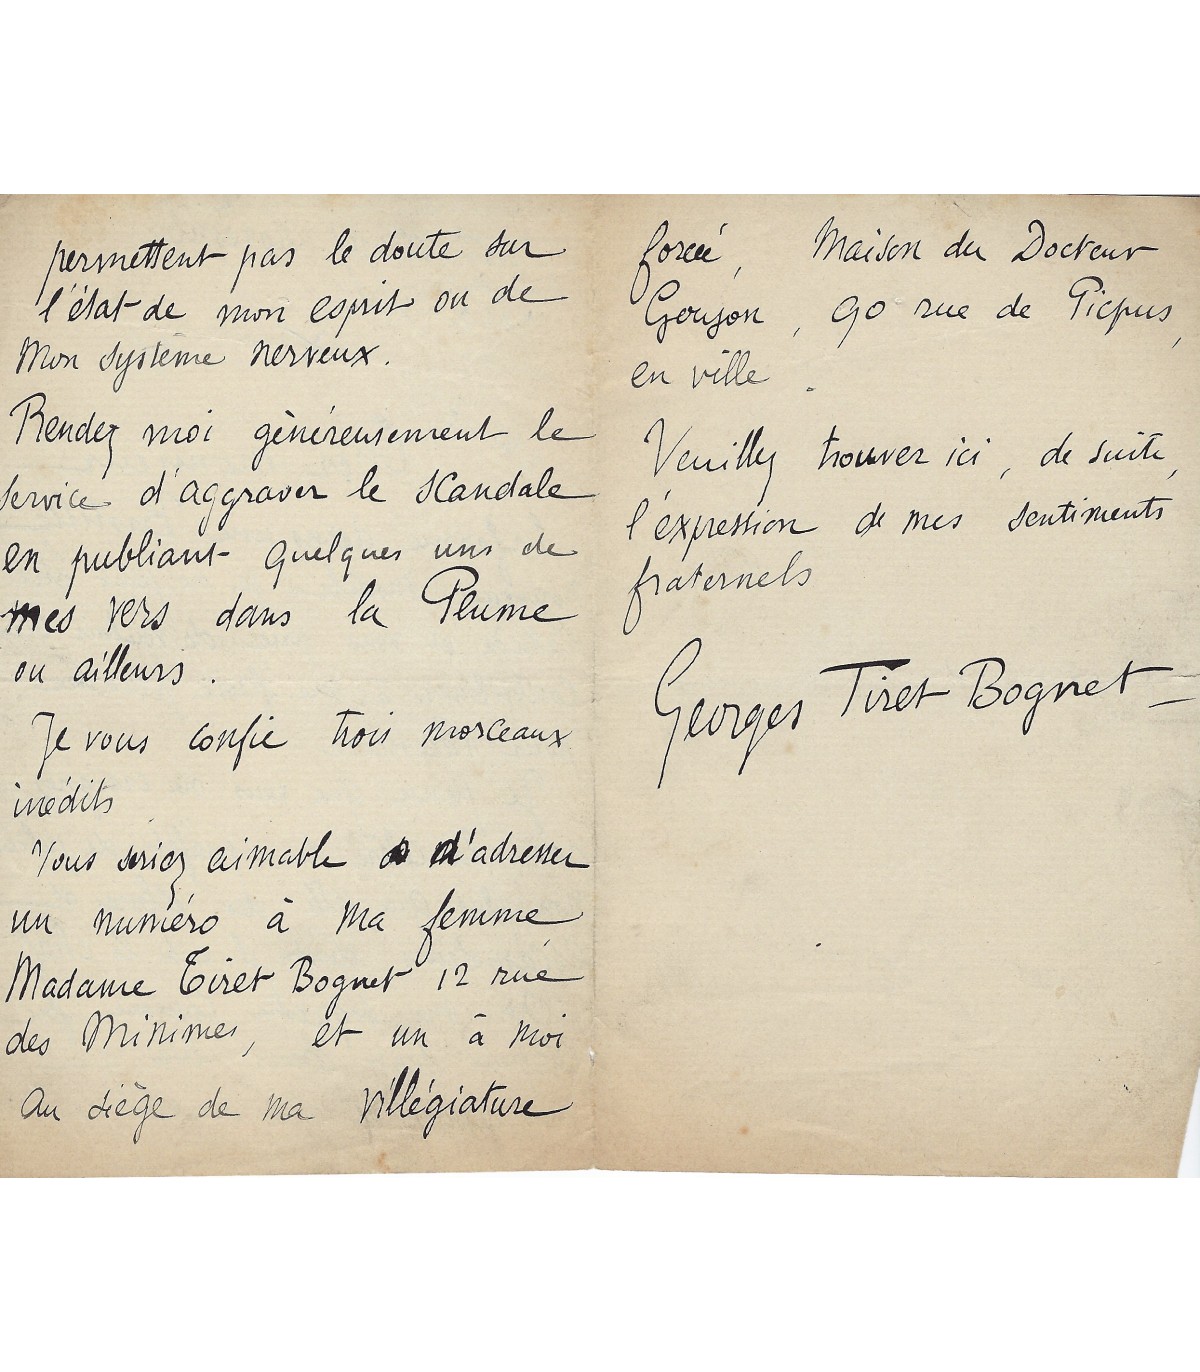 permettent pas le doute sur
l'état de mon esprit ou de
Mon système nerveux.
Rendez moi généreusement le
service d'aggraver le scandale
en publiant quelques uns de
mes vers dans la Plume
ou ailleurs.
Je vous confie trois morceaux
inédits
Vous seriez aimable d'adresser
un numéro à ma femme
Madame Tiret Bognet 12 rue
des Minimes, et un à moi
au siège de ma villégiature
forcée, Maison du Docteur
Goujon, 90 rue de Picpus,
en ville.
Veuillez trouver ici, de suite,
l'expression de mes sentiments
fraternels
Georges Tiret Bognet